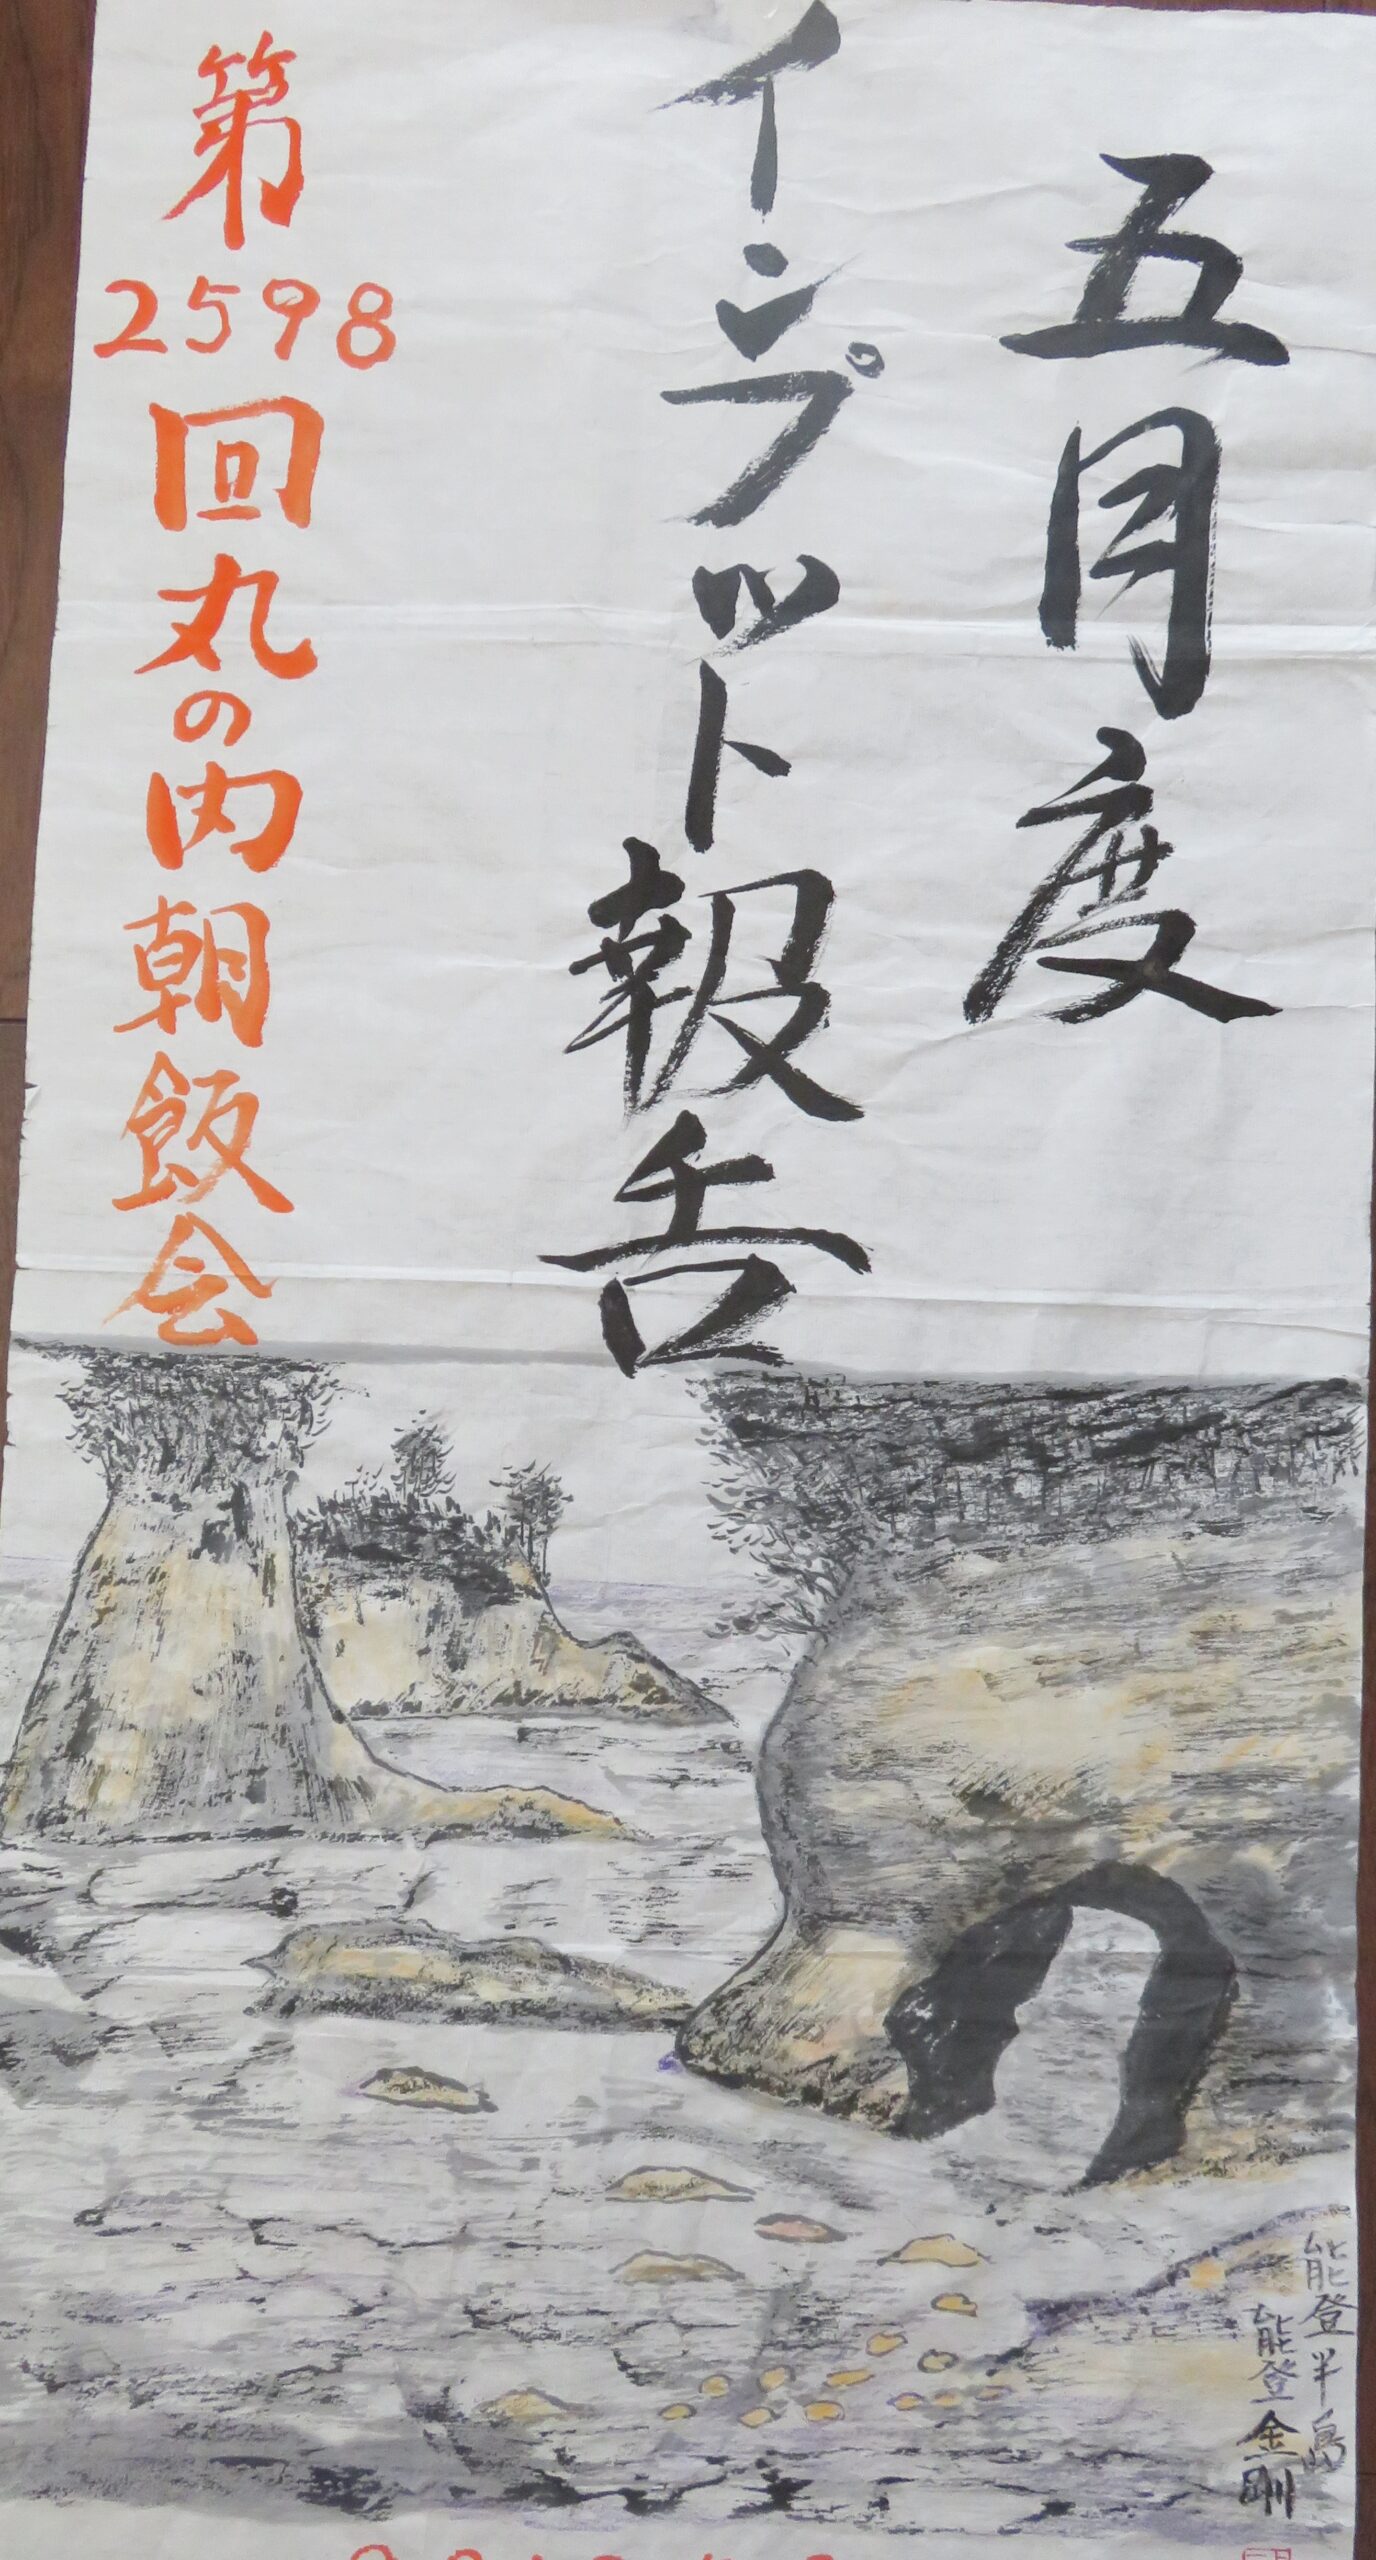 五月度
インプット報告
第2598回丸の内朝飯会
能登半島
能登金剛